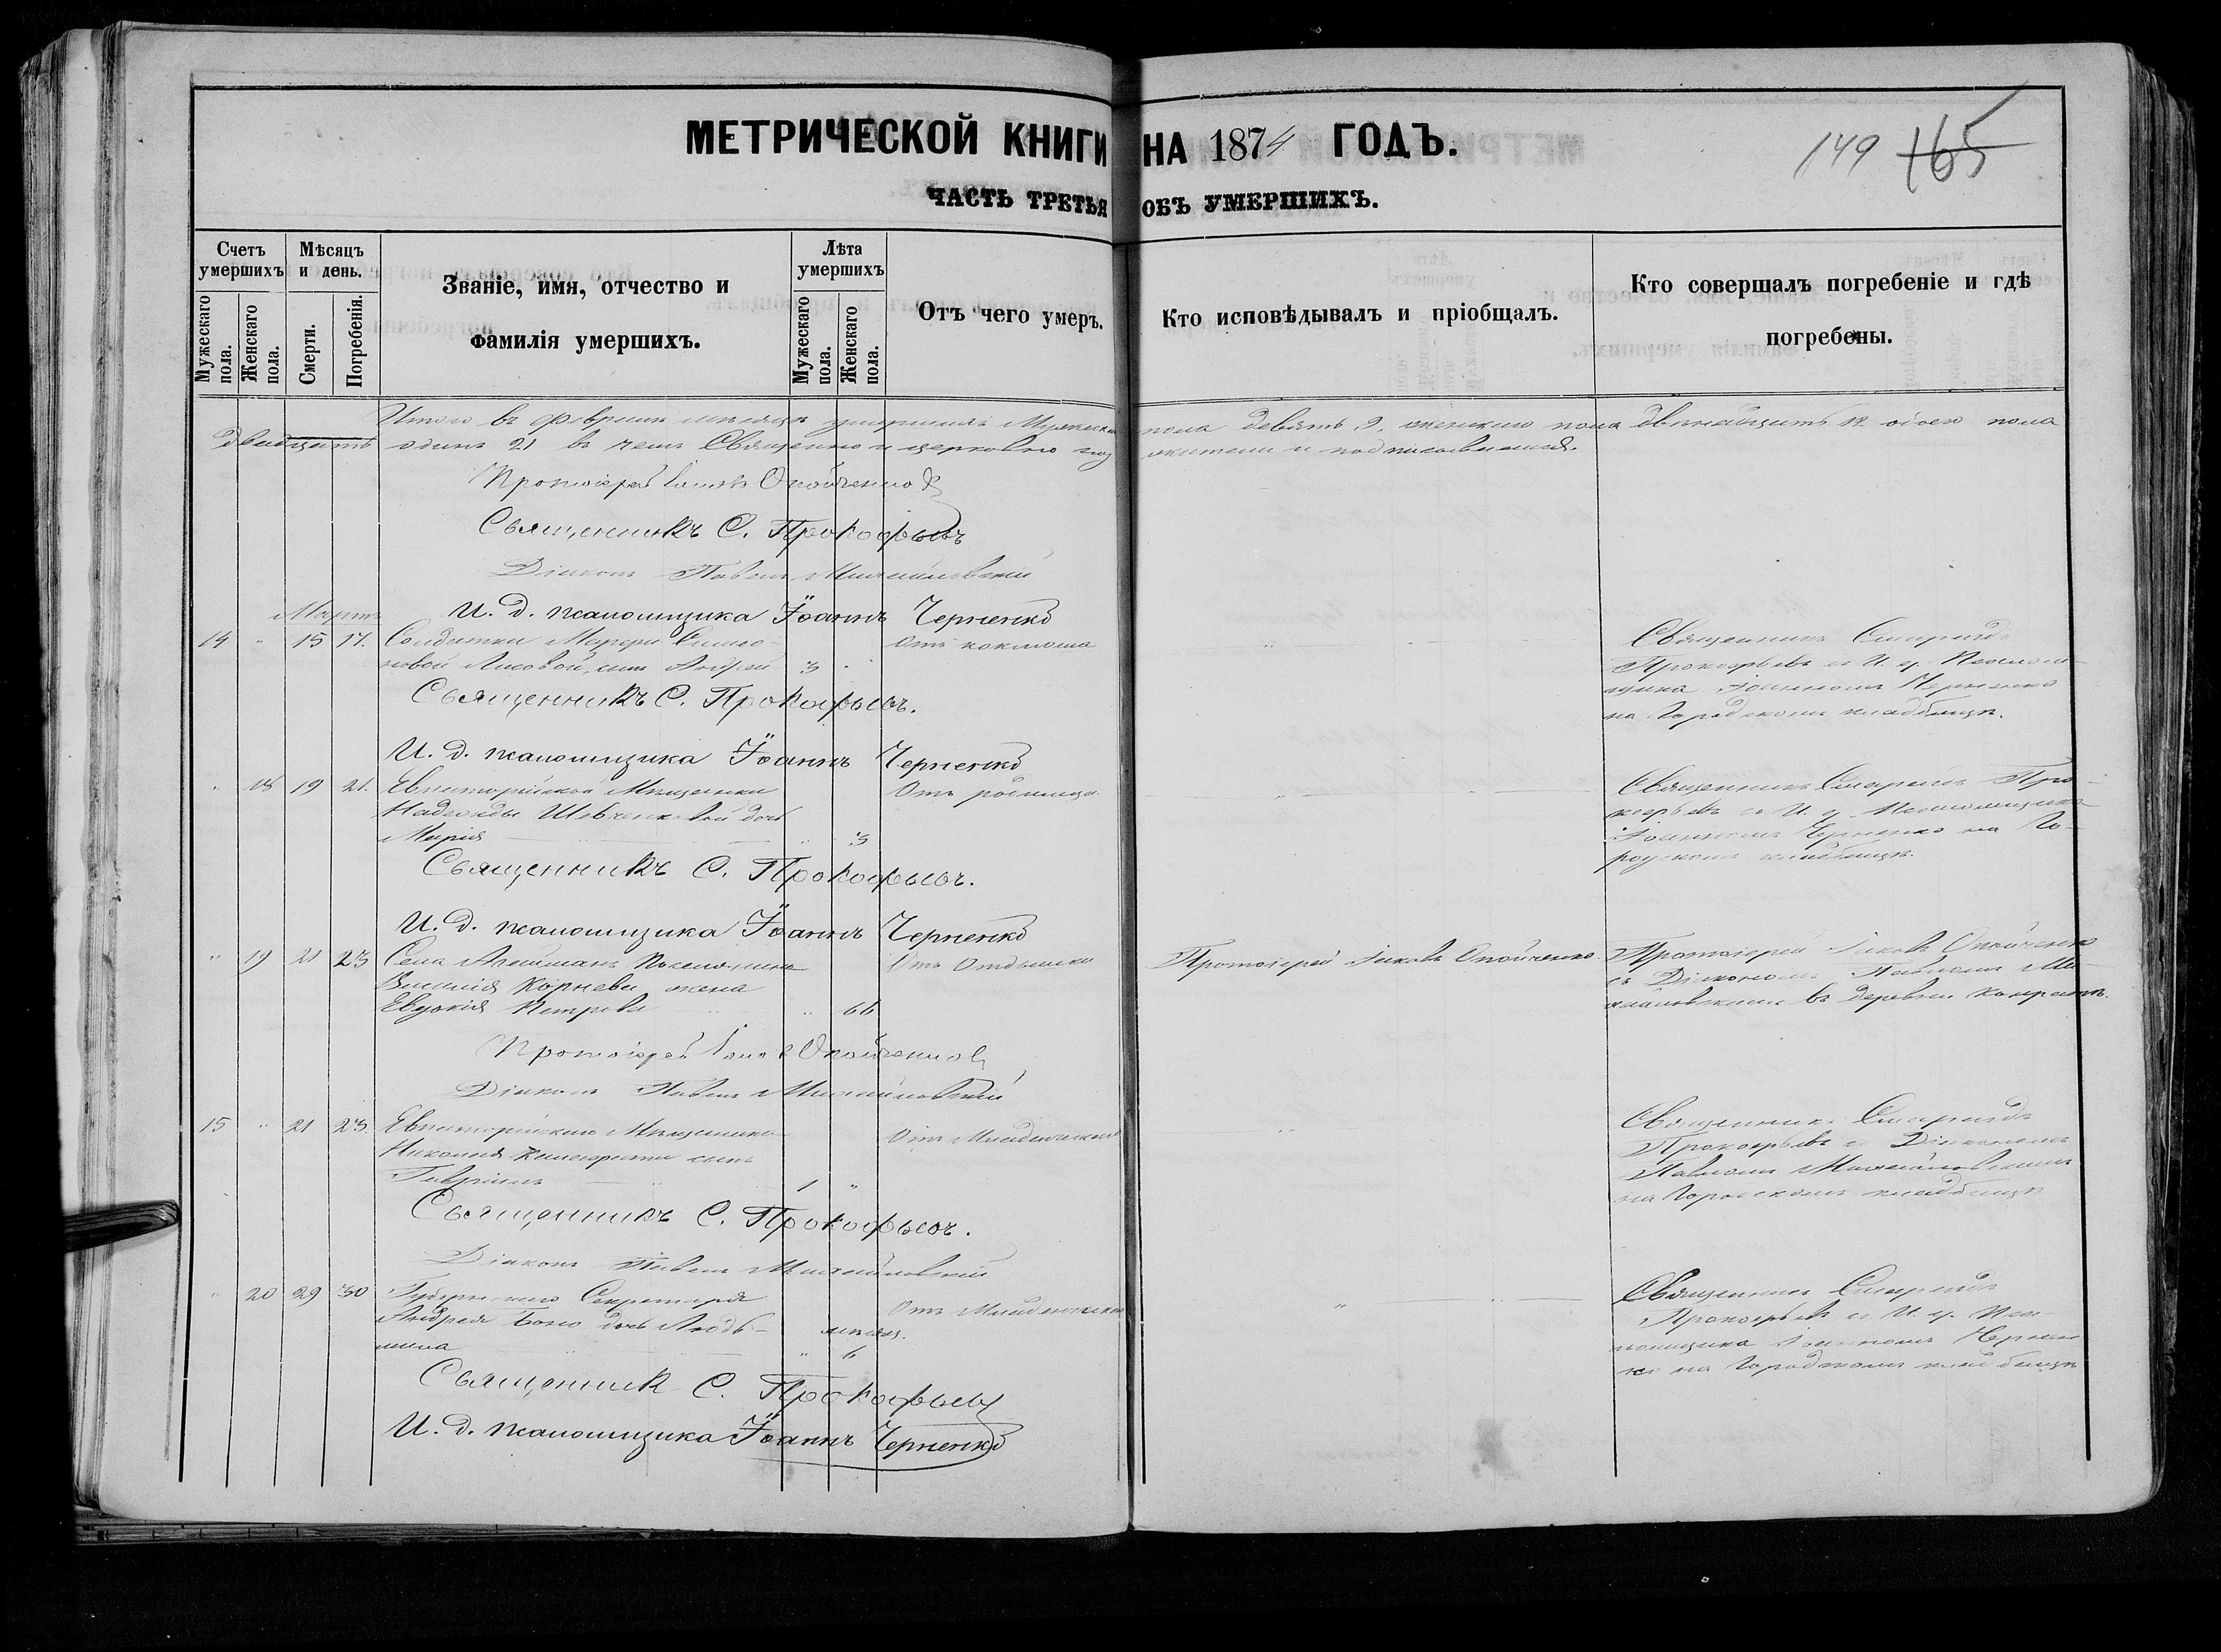 МЕТРИЧЕСКОЙ КНИГИ НА 1874 ГОДЪ.
149 165
ЧАСТЬ ТРЕТЬЯ ОБЪ УМЕРШИХЪ.
Счетъ умершихъ
Мужескаго пола.
Женскаго пола.
Мѣсяцъ и день.
Смерти.
Погребенія.
Званіе, имя, отчество и
фамилія умершихъ.
Лѣта умершихъ
Мужескаго пола.
Женскаго пола.
Отъ чего умеръ.
Кто исповѣдывалъ и пріобщалъ.
Кто совершалъ погребеніе и гдѣ
погребены.
Итого въ февралѣ мѣсяцѣ умершихъ Мужеска пола девять 9, женскаго пола двѣнадцать 12 обоего пола
двадцать одинъ 21 въ чемъ Священно и церковно слу жители и подписываемся.
Протоіерей Іаковъ Опойченко
Священникъ С. Прокофьевъ
Діаконъ Павелъ Михайловскій
Мартъ
И. д. псаломщика Іоаннъ Черненко
14 " 15 17. Солдатки Марфы Симео-
новой Лисовой, сынъ Андрей 3 "
Отъ коклюша
Священникъ Смарагдъ
Прокофьевъ съ И. д. Псалом-
щика Іоанномъ Черненко
на Городскомъ кладбищѣ.
Священникъ С. Прокофьевъ.
И. д. псаломщика Іоаннъ Черненко
" 18 19 21. Евпаторійской Мѣщанки
Надежды Шевченковой дочь
Марія " 3
Отъ родимца
Священникъ Смарагдъ Про-
кофьевъ съ И. д. Псаломщика
Іоанномъ Черненко на Го-
родскомъ кладбищѣ.
Священникъ С. Прокофьевъ.
И. д. псаломщика Іоаннъ Черненко
" 19 21 23 Села Поселянина
Василія Корнева жена
Евдокія Петрова " 66
Отъ Отдышки
Протоіерей Іаковъ Опойченко
Протоіерей Іаковъ Опойченко
съ Діакономъ Павломъ Ми-
хайловскимъ въ деревни
Протоіерей Іаковъ Опойченко
Діаконъ Павелъ Михайловскій
15 " 21 23. Евпаторійскаго Мѣщанина
Николая сынъ
Гавріилъ 1 "
Отъ Младенческой
Священникъ Смарагдъ
Прокофьевъ съ Діакономъ
Павломъ Михайловскимъ
на Городскомъ кладбищѣ
Священникъ С. Прокофьевъ.
Діаконъ Павелъ Михайловскій
" 20 29 30 Губернскаго Секретаря
Андрея дочь Люд-
мила " 6
мѣсяц.
Отъ Младенческой
Священникъ Смарагдъ
Прокофьевъ съ И. д. Пса-
ломщика Іоанномъ Чернен-
ко на Городскомъ кладбищѣ
Священникъ С. Прокофьевъ
И. д. псаломщика Іоаннъ Черненко